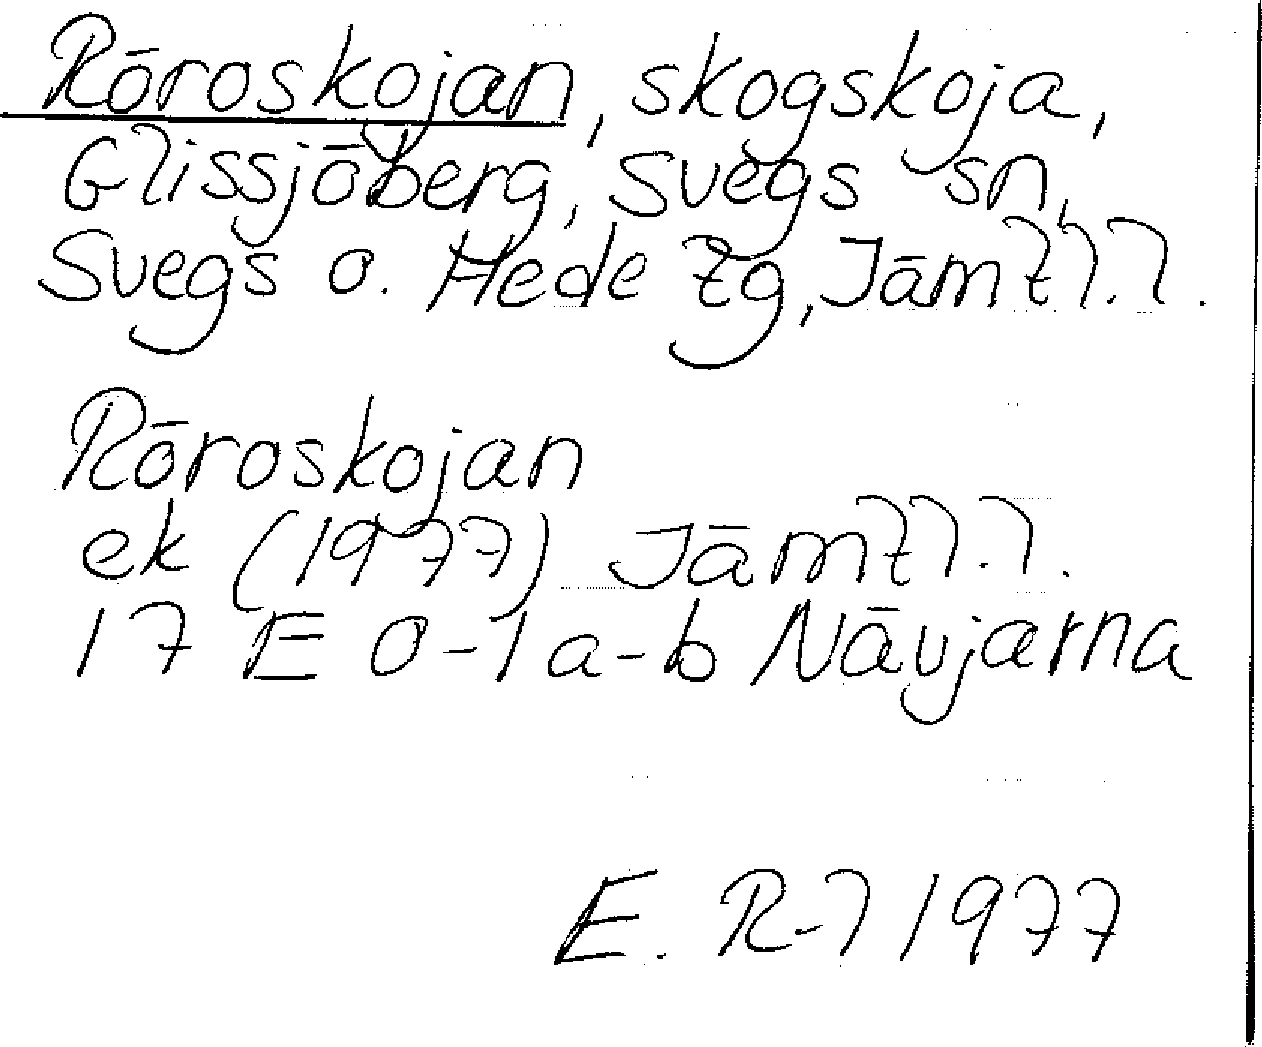 Röroskojan, skogskoja,
Glissjöberg, Svegs sn,
Svegs o. Hede tg, Jämtl.l.
Röroskojan
ek (1977) Jämtl.l.
17 E 0-1 a-b Nävjarna
E. R-l 1977